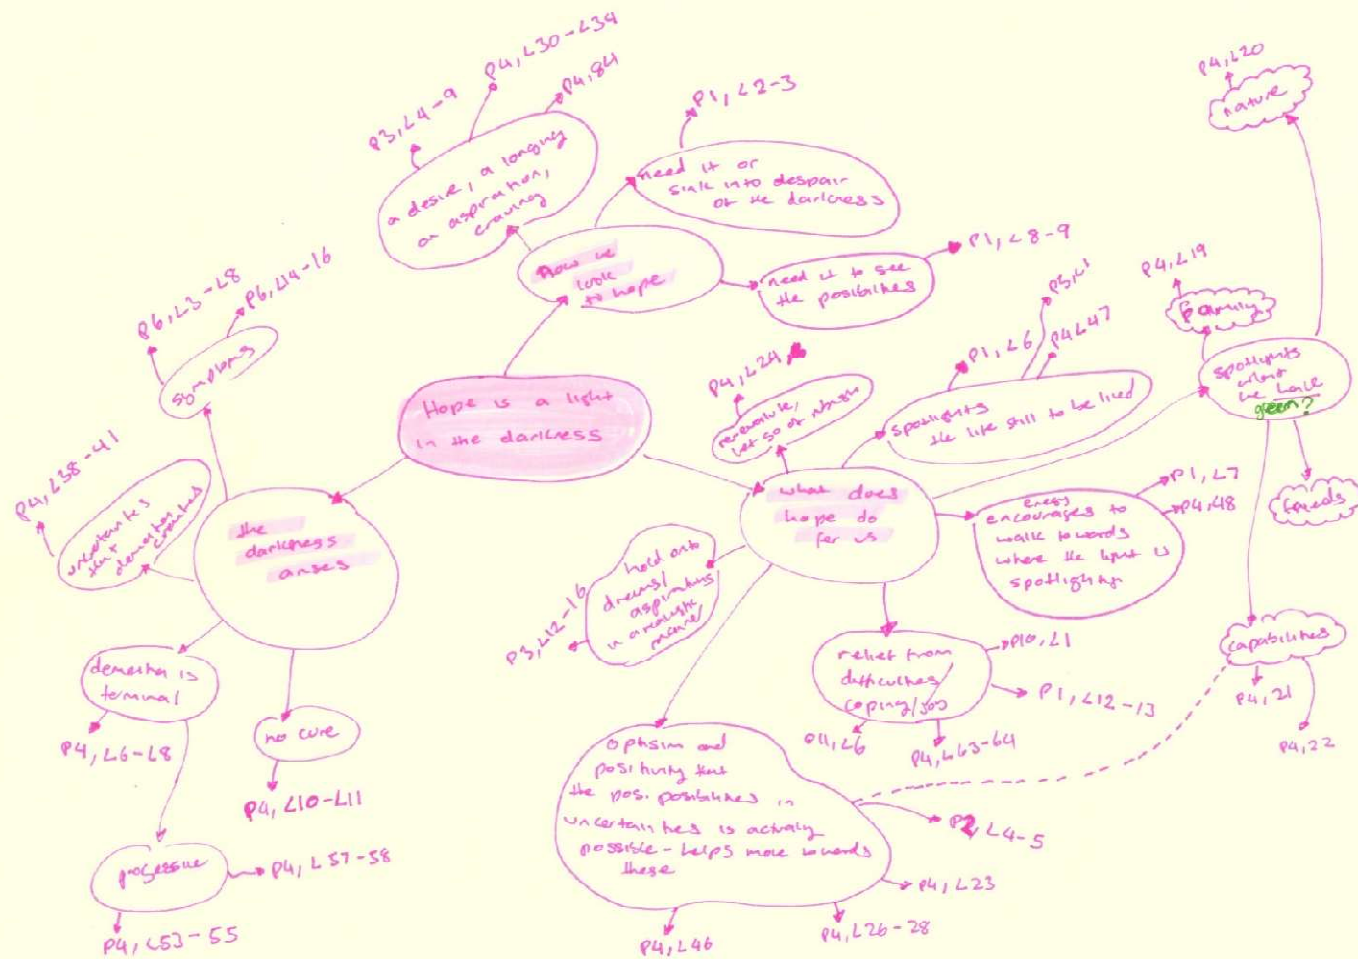 Hope is a light
in the darkness
How we
look
to hope
a desire, a longing
an aspiration,
craving
P3, L4-9
P4, L30-L34
P4, 84
need it or
sink into despair
of the darkness
P1, L2-3
need it to see
the posibilities
P1, L8-9
the
darkness
arises
symptoms
P6, L3-L8
P6, L14-16
uncertainties
that
dementia
creates
P4, L38-41
dementia is
terminal
P4, L6-L8
progessive
P4, L57-58
P4, L53-55
no cure
P4, L10-L11
what does
hope do
for us
renewable/
let go of
P4, L24
spotlights
the life still to be lived
P1, L6
P5, L1
P4 L47
spotlights
what
we have
green?
family
P4, L19
nature
P4, L20
friends
capabilities
P4, 21
P4, 22
encourages to
walk towards
where the light is
spotlighting
P1, L7
P4, 48
relief from
difficulties
coping/joy
P10, L1
P1, L12-13
P4, L63-64
P11, L6
hold onto
dreams/
aspirations
in a realistic
manner
P3, L12-16
optisim and
positivity that
the pos. posibilities in
uncertainties is actualy
possible - helps move towards
these
P2, L4-5
P4, L23
P4, L26-28
P4, L46